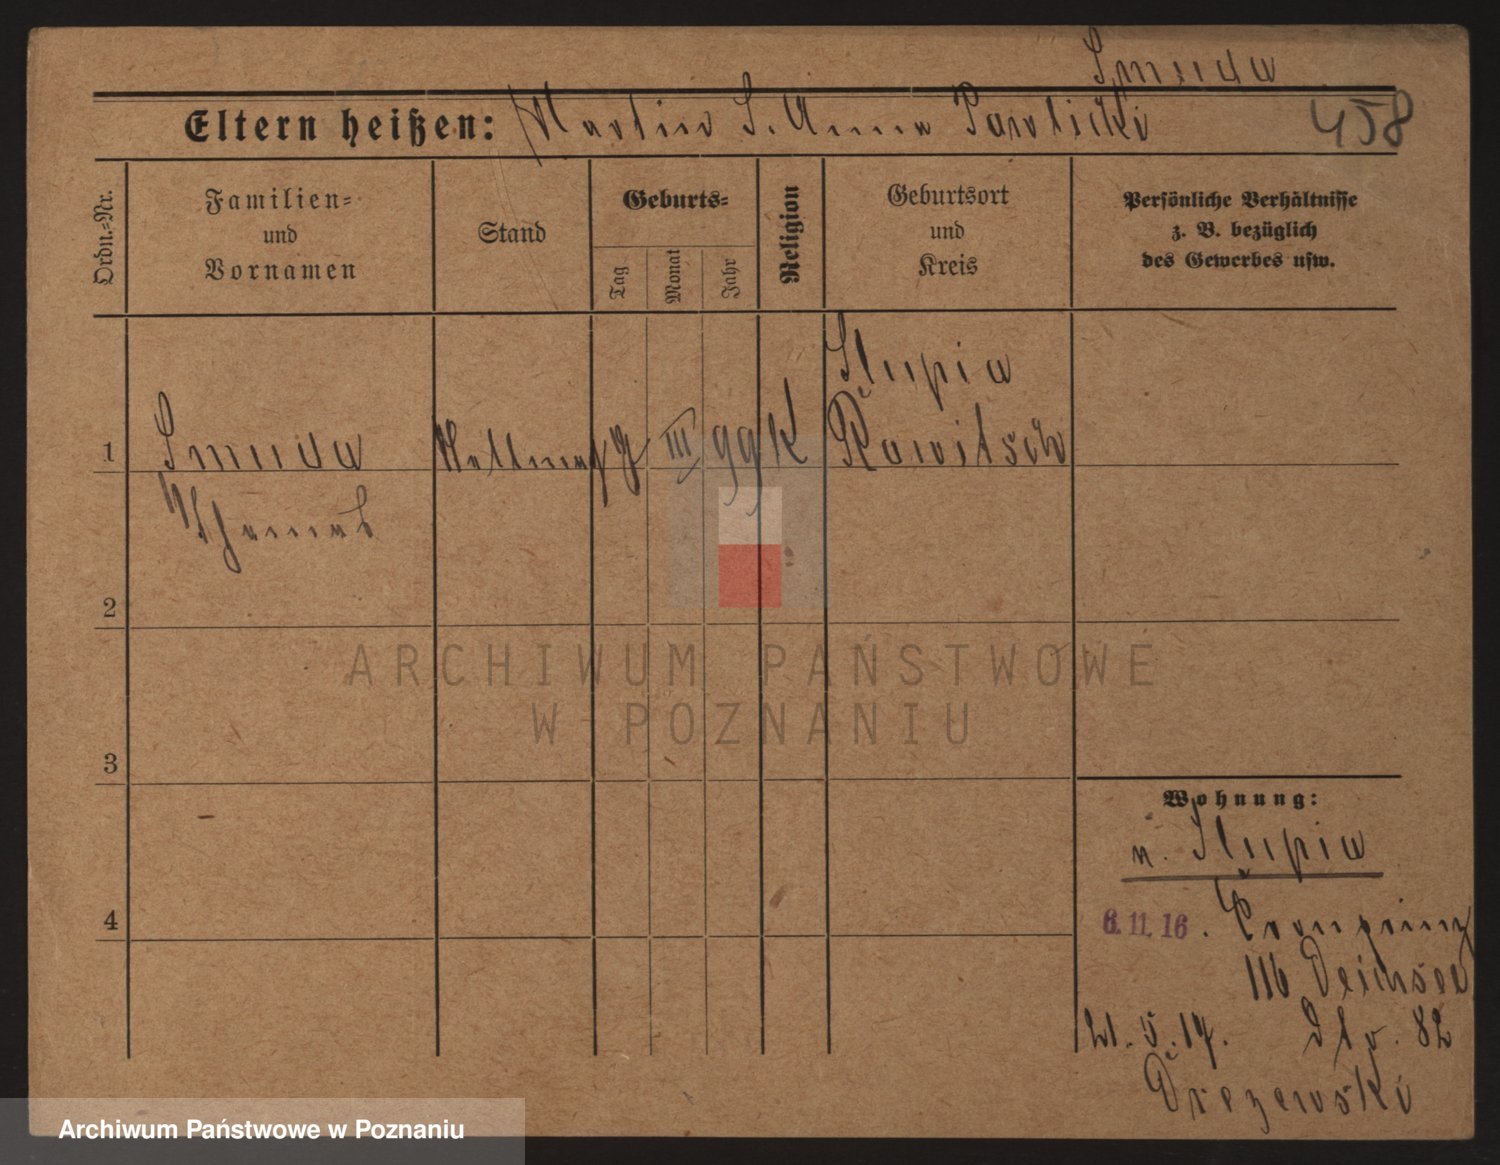 Smuda
Eltern heißen: Martin S. Anna Pawlicki
458
Ordn.=Nr.
Familien=
und
Vornamen
Stand
Geburts=
Tag
Monat
Jahr
Religion
Geburtsort
und
Kreis
Persönliche Verhältnisse
z. B. bezüglich
des Gewerbes usw.
Slupia
1 Smuda III 99 K Rawitsch
Thomas
2
ARCHIWUM PAŃSTWOWE
W POZNANIU
3
Wohnung:
n. Slupia
4
6. 11. 16. Cronprinz
116 Deichsel
21. 5. 17. 82
Drezewski
Archiwum Państwowe w Poznaniu